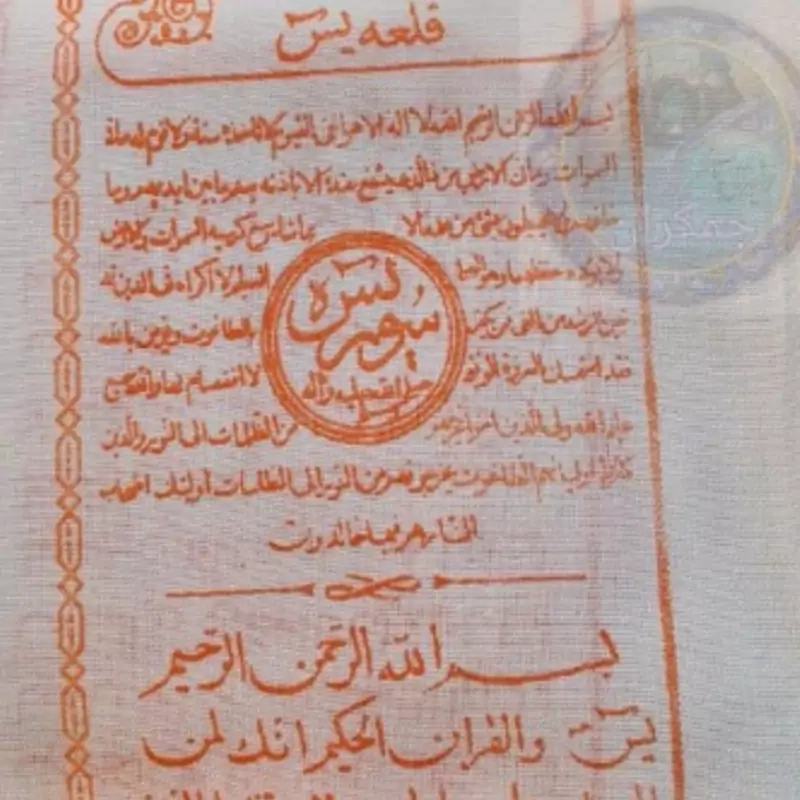 قلعه یس
بسم الله الرحمن الرحیم الله لا اله الا هو الحی القیوم لا تاخذه سنة ولا نوم له ما فی
السموات وما فی الارض من ذالذی یشفع عنده الا باذنه یعلم ما بین ایدیهم وما
خلفهم ولا یحیطون بشئ من علمه الا بما شاء وسع کرسیه السموات والارض
ولا یؤده حفظهما وهو العلی العظیم لا اکراه فی الدین قد
تبین الرشد من الغی فمن یکفر بالطاغوت ویؤمن بالله
فقد استمسک بالعروة الوثقی لا انفصام لها والله سمیع
علیم الله ولی الذین امنوا یخرجهم من الظلمات الی النور والذین
کفروا اولیائهم الطاغوت یخرجونهم من النور الی الظلمات اولئک اصحاب
النار هم فیها خالدون
سوره یس
صلی الله علیه وآله
وسلم
بسم الله الرحمن الرحیم
یس والقران الحکیم انک لمن
جمکران